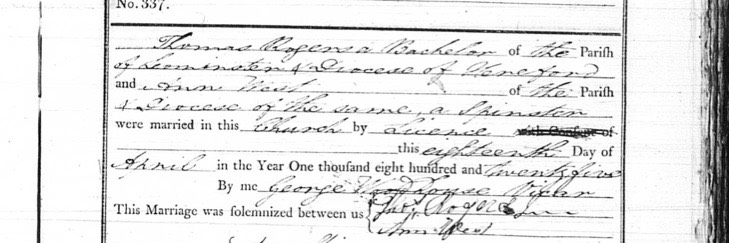 No. 337.
Thomas Rogers a Bachelor of the Parish
of Leominster & Diocese of Hereford
and Ann West of the Parish
& Diocese of the same, a Spinster
were married in this Church by Licence with Consent of
this eighteenth Day of
April in the Year One thousand eight hundred and twenty five
By me George Woodhouse Vicar
This Marriage was solemnized between us Thos. Rogers
Ann West